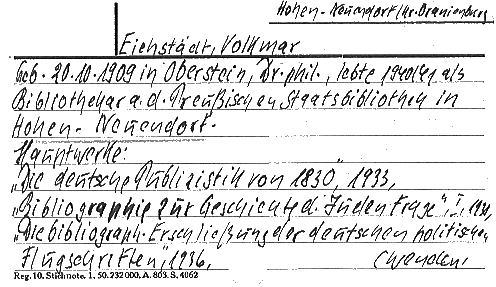 Hohen-Neuendorf/Kr. Oranienburg
Eichstädt, Volkmar
Geb. 20.10.1909 in Oberstein, Dr. phil., lebte 1940/41 als
Bibliothekar a. d. Preußischen Staatsbibliothek in
Hohen-Neuendorf.
Hauptwerke:
„Die deutsche Publizistik von 1830", 1933,
„Bibliographie zur Geschichte d. Judenfrage", I, 1938,
„Die bibliograph. Erschließung der deutschen politischen
Flugschriften", 1936, (wenden!
Reg. 10. Stichnote. 1. 50. 232 000. A. 803. S. 4062